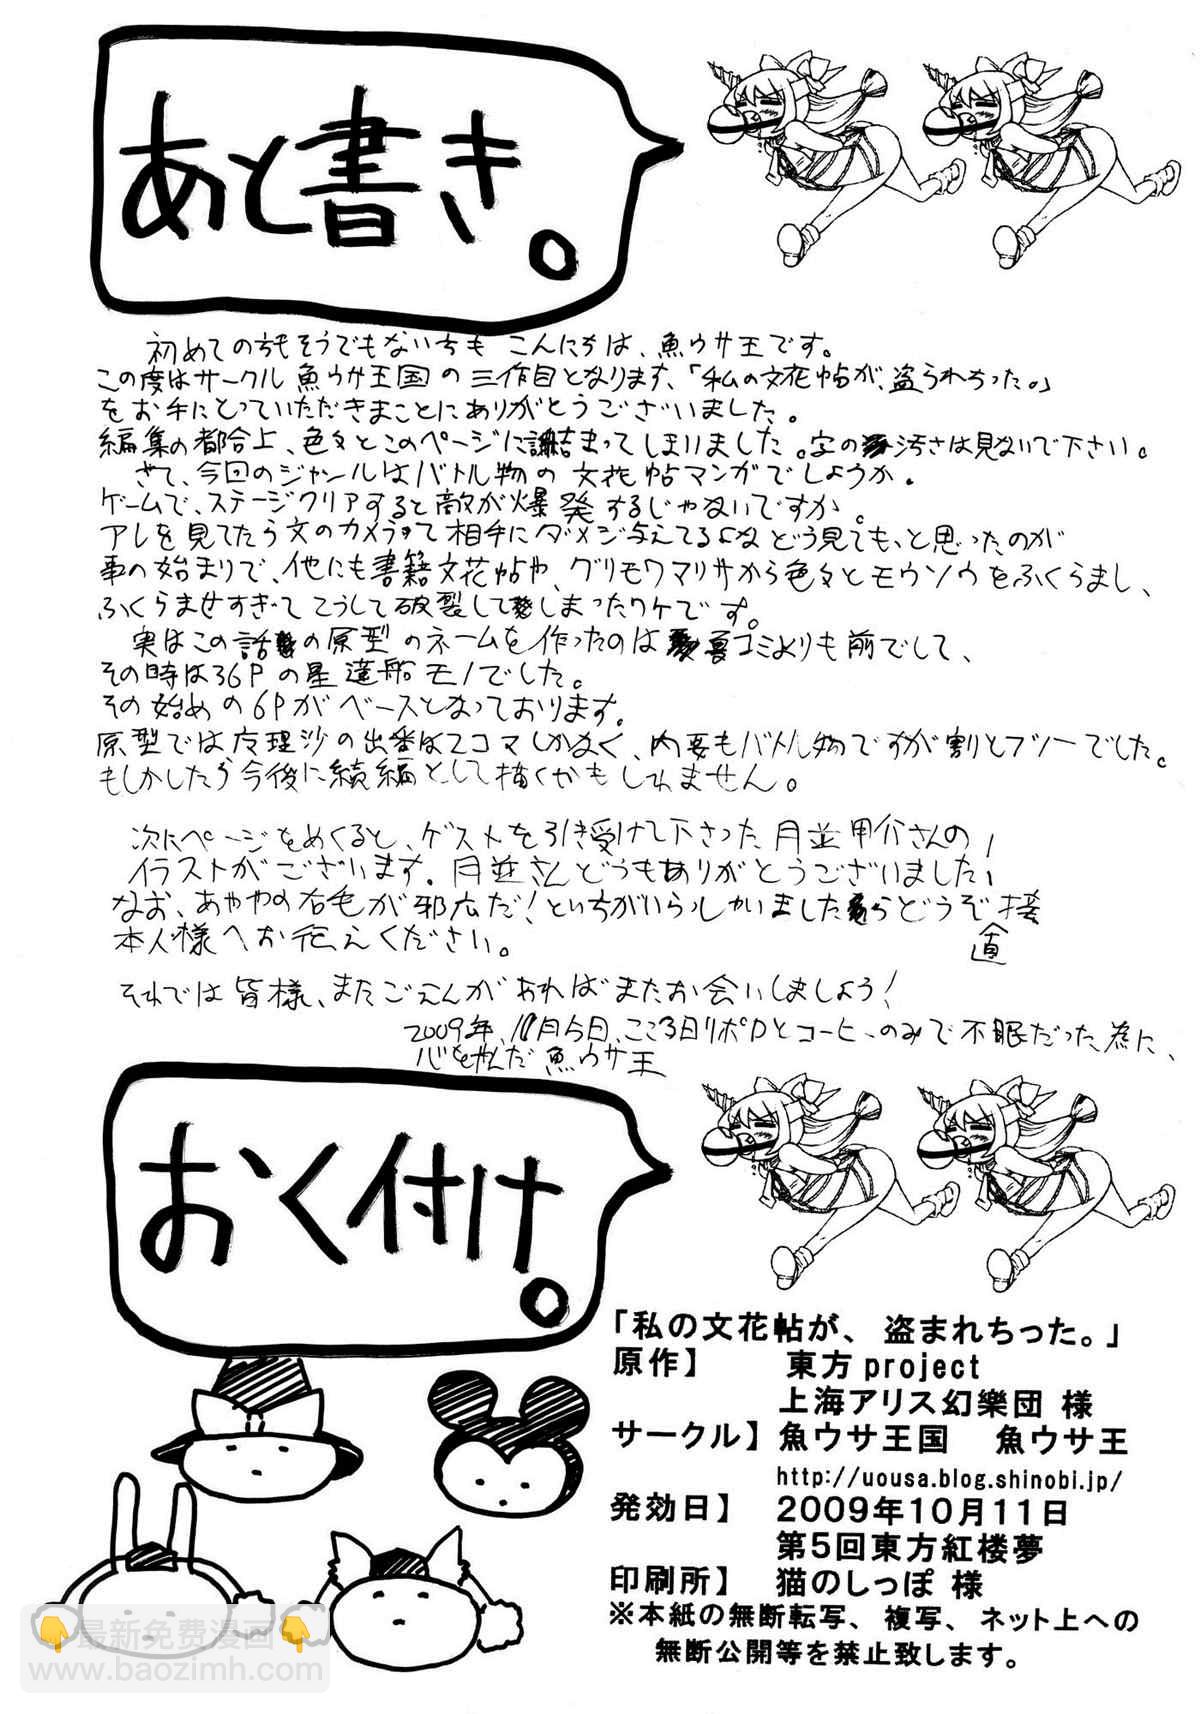 あと書き。
初めての方もそうでもない方も こんにちは、魚ウサ王です。
この度はサークル 魚ウサ王国の三作目となります、「私の文花帖が、盗られちった。」
をお手にとっていただきまことにありがとうございました。
編集の都合上、色々とこのページに詰まってしまいました。字の汚さは見ないで下さい。
さて、今回のジャンルはバトル物の文花帖マンガでしょうか。
ゲームで、ステージクリアすると敵が爆発するじゃないですか。
アレを見てたら文のカメラって相手にダメージ与えてるよな どう見ても、と思ったのが
事の始まりで、他にも書籍文花帖や、グリモワマリサから色々とモウソウをふくらまし、
ふくらませすぎて こうして破裂してしまったワケです。
実はこの話の原型のネームを作ったのは夏コミよりも前でして、
その時は36Pの星蓮船モノでした。
その始めの6Pがベースとなっております。
原型では魔理沙の出番は2コマしかなく、内容もバトル物ですが割とフツーでした。
もしかしたら今後に続編として描くかもしれません。
次にページをめくると、ゲストを引き受けて下さった月並甲介さんの
イラストがございます。月並さんどうもありがとうございました!
なお、あややの右毛が邪広だ!という方がいらっしゃいましたらどうぞ 直接
本人様へお伝えください。
それでは皆様、またごえんがあればまたお会いしましょう!
2009年、10月5日、ここ3日リポDとコーヒーのみで不眠だった為に、
心をやんだ 魚ウサ王
おく付け。
「私の文花帖が、盗まれちった。」
原作】 東方project
上海アリス幻樂団 様
サークル】 魚ウサ王国 魚ウサ王
http://uousa.blog.shinobi.jp/
発効日】 2009年10月11日
第5回東方紅楼夢
印刷所】 猫のしっぽ 様
※本紙の無断転写、複写、ネット上への
無断公開等を禁止致します。
👇最新免费漫画👇
www.baozimh.com